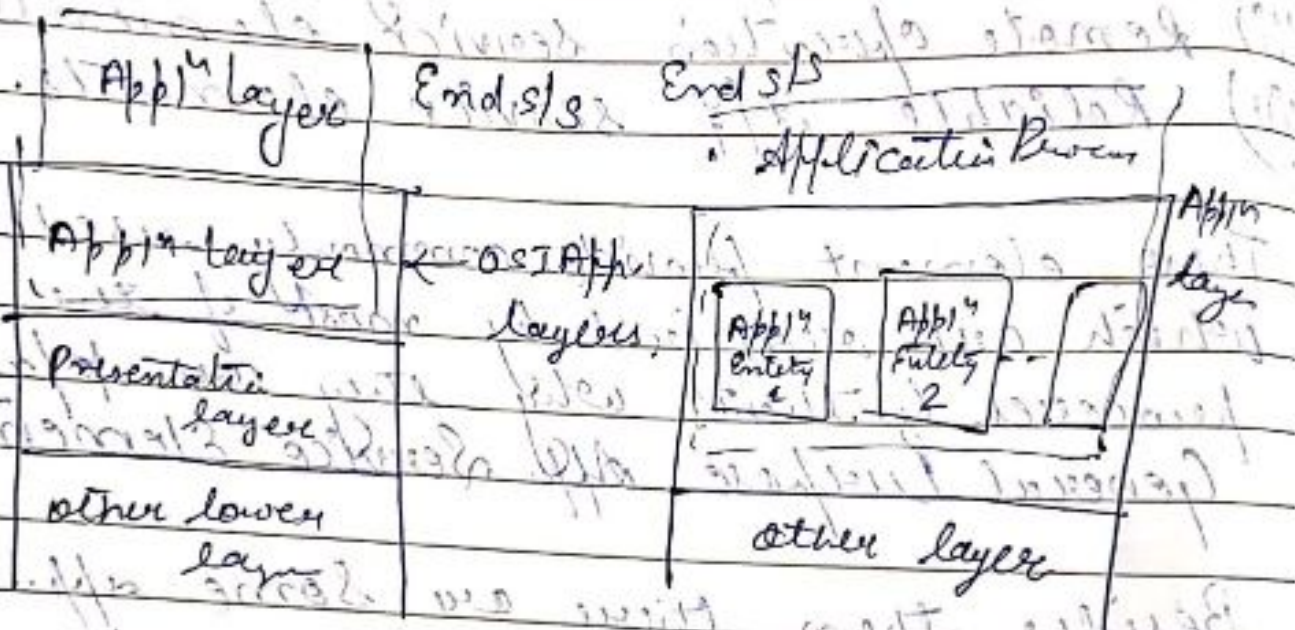 Appl^n layer
End s/s
End s/s
Application Process
Appl^n layer
← OSI App.
layers
Appl^n
layer
Appl^n
Entity
1
Appl^n
Entity
2
--
Presentatio
layer
other lower
laye
other layer